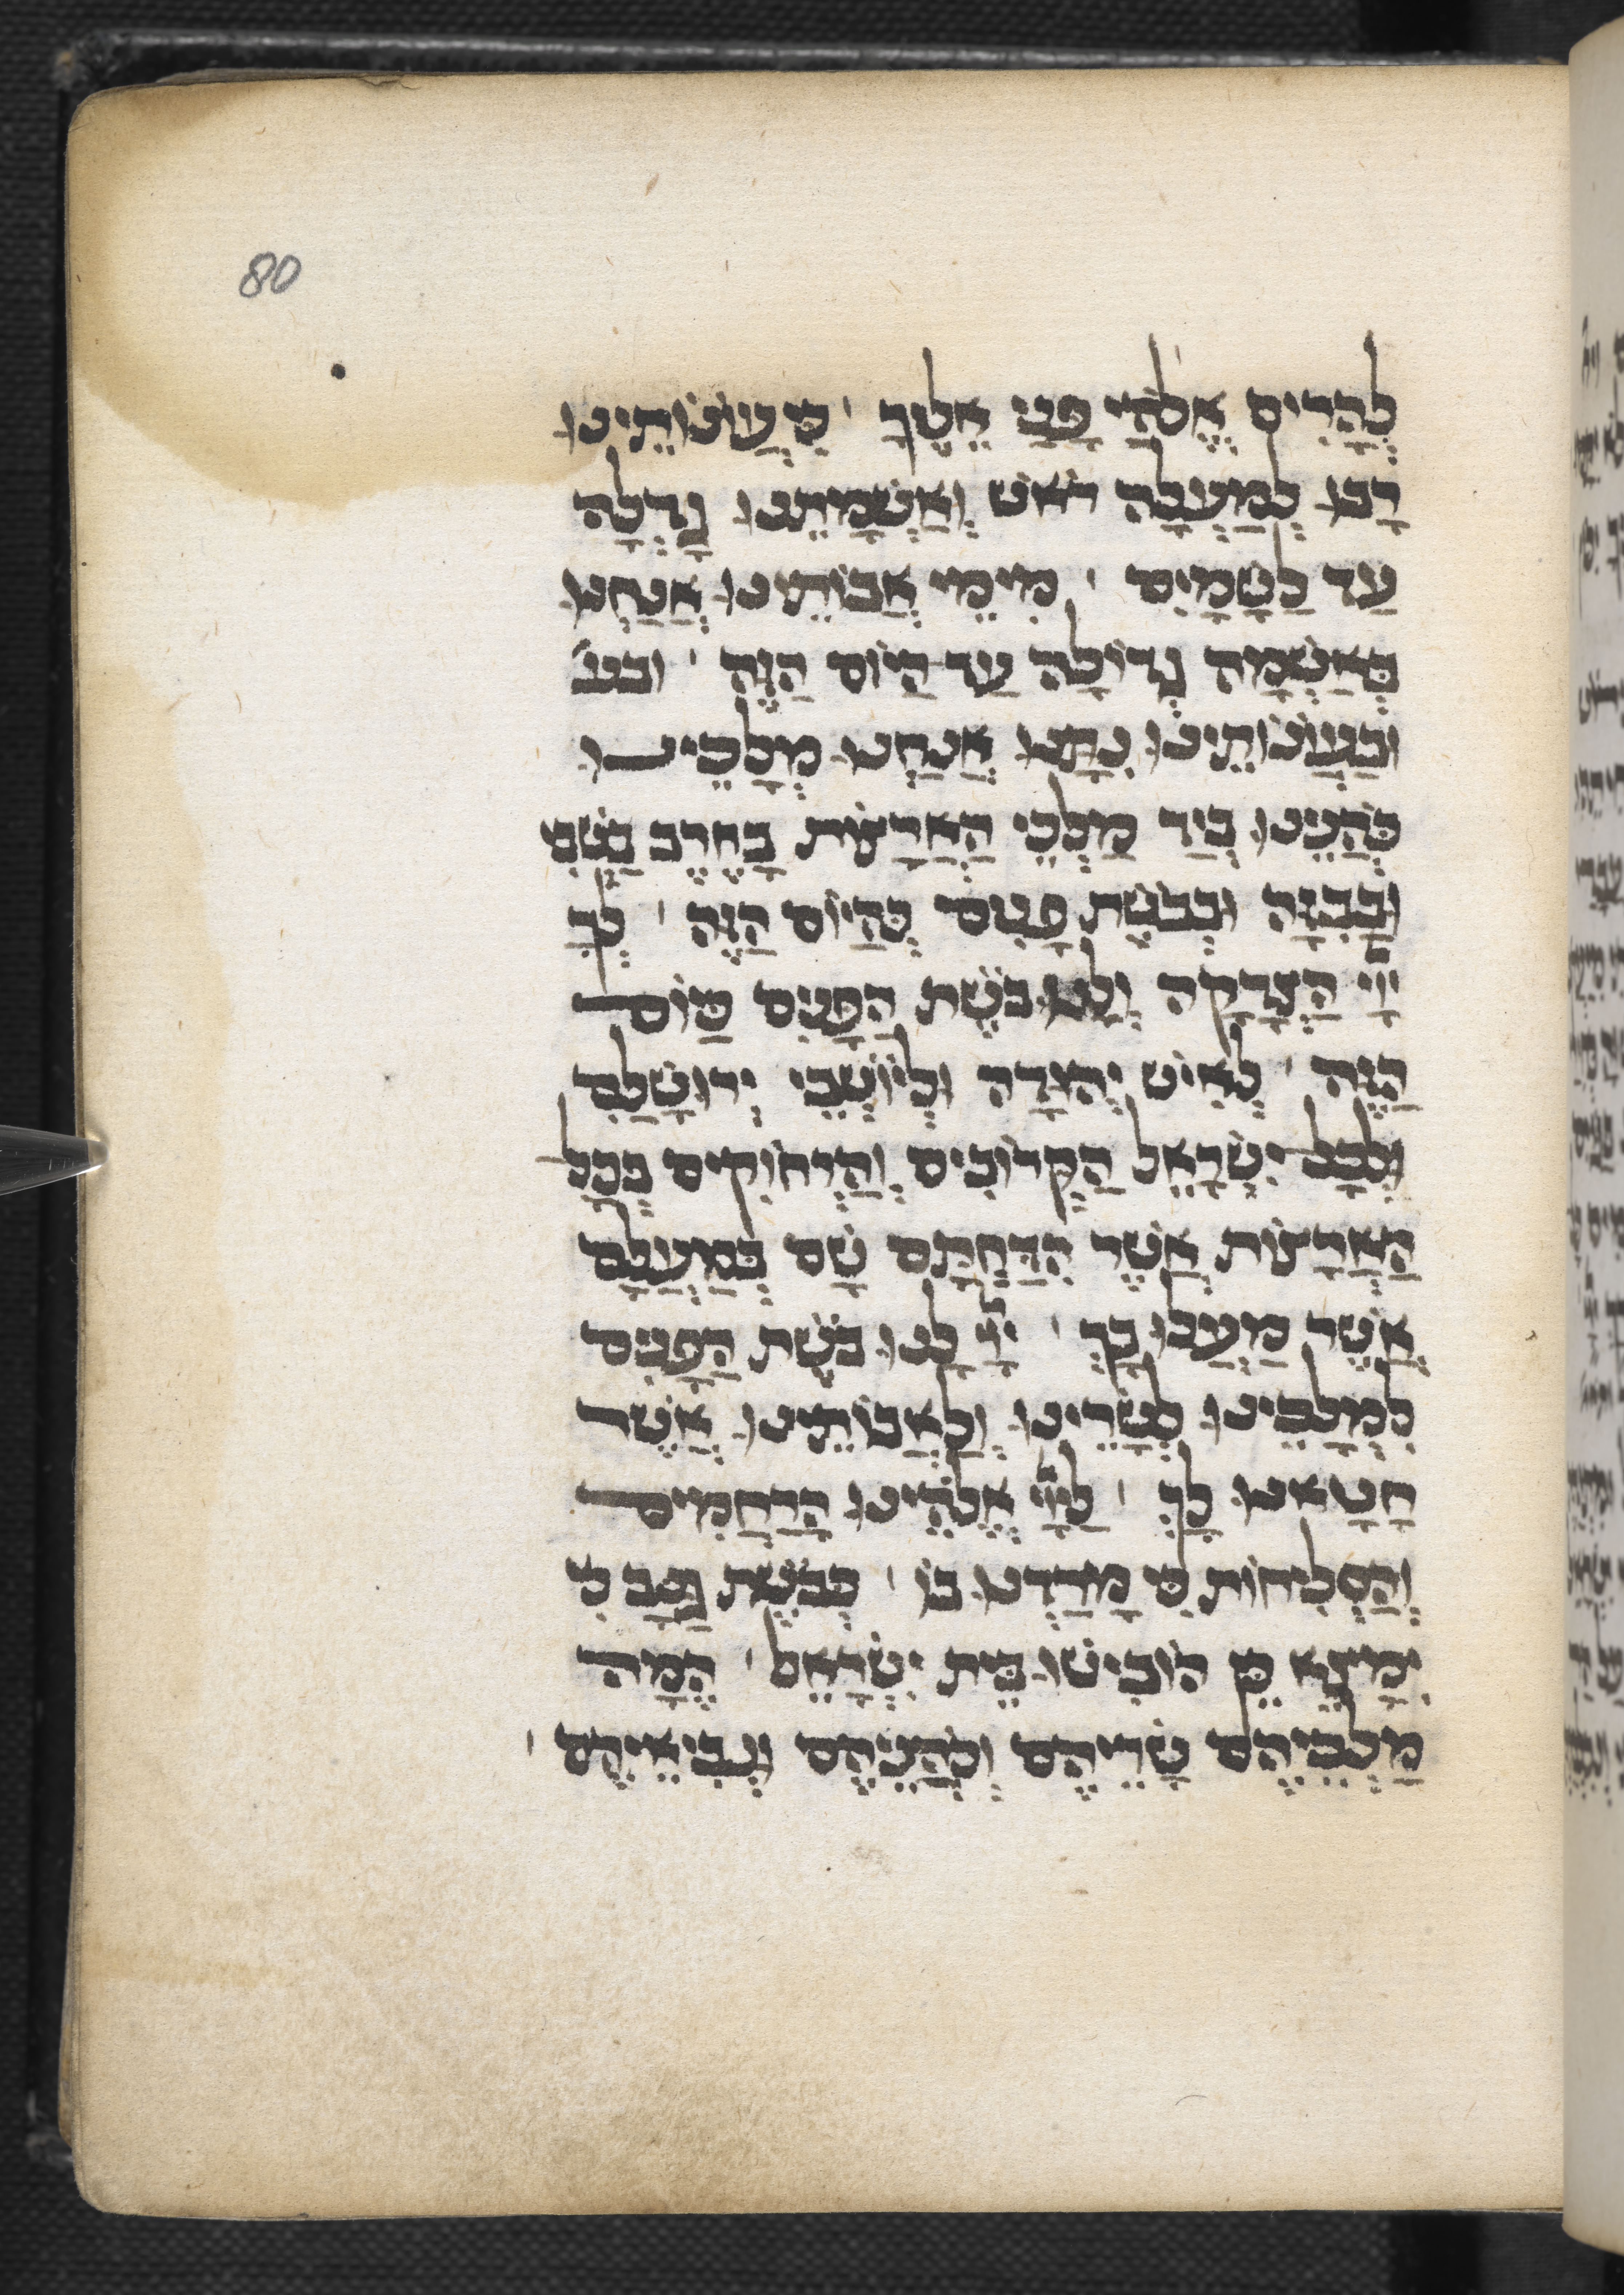 80
לְהָרִים אֱלֹהַי פָּנַי אֵלֶיךָ · כִּי עֲוֹנוֹתֵינוּ
רָבוּ לְמַעְלָה רֹאשׁ וְאַשְׁמָתֵנוּ גָדְלָה
עַד לַשָּׁמָיִם · מִימֵי אֲבוֹתֵינוּ אֲנַחְנוּ
בְּאַשְׁמָה גְדוֹלָה עַד הַיּוֹם הַזֶּה ·
וּבַעֲוֹנוֹתֵינוּ נִתַּנּוּ אֲנַחְנוּ מְלָכֵינוּ
כֹּהֲנֵינוּ בְּיַד מַלְכֵי הָאֲרָצוֹת בַּחֶרֶב בַּשְּׁבִי
וּבַבִּזָּה וּבְבֹשֶׁת פָּנִים כְּהַיּוֹם הַזֶּה · לְךָ
יְיָ הַצְּדָקָה וְלָנוּ בֹּשֶׁת הַפָּנִים כַּיּוֹם
הַזֶּה · לְאִישׁ יְהוּדָה וּלְיוֹשְׁבֵי יְרוּשָׁלַםִ
וּלְכָל יִשְׂרָאֵל הַקְּרוֹבִים וְהָרְחוֹקִים בְּכָל
הָאֲרָצוֹת אֲשֶׁר הִדַּחְתָּם שָׁם בְּמַעֲלָם
אֲשֶׁר מָעֲלוּ בָךְ · יְיָ לָנוּ בֹּשֶׁת הַפָּנִים
לִמְלָכֵינוּ לְשָׂרֵינוּ וְלַאֲבוֹתֵינוּ אֲשֶׁר
חָטָאנוּ לָךְ · לַיְיָ אֱלֹהֵינוּ הָרַחֲמִים
וְהַסְּלִיחוֹת כִּי מָרַדְנוּ בוֹ · כְּבֹשֶׁת גַּנָּב כִּי
יִמָּצֵא כֵּן הוֹבִישׁוּ בֵּית יִשְׂרָאֵל · הֵמָּה
מַלְכֵיהֶם שָׂרֵיהֶם וְכֹהֲנֵיהֶם וּנְבִיאֵיהֶם ·